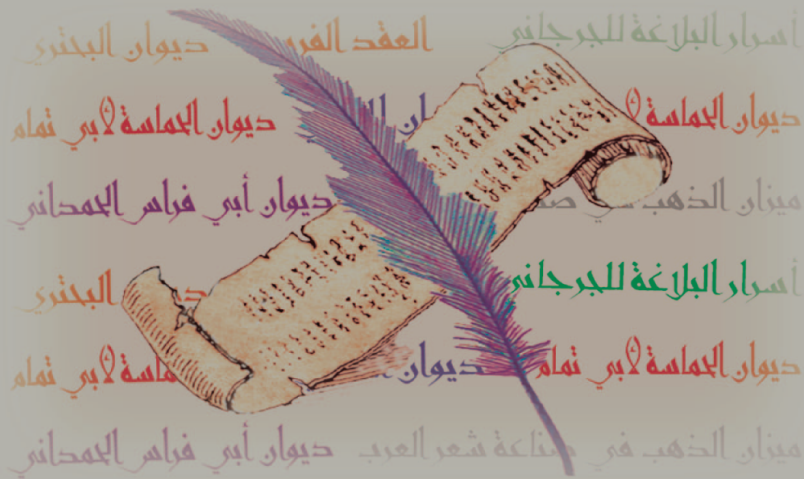 أسرار البلاغة للجرجاني العقد ديوان البحتري
ديوان الحماسة ديوان الحماسة لأبي تمام
ميزان الذهب في ديوان أبي فراس الحمداني
أسرار البلاغة للجرجاني البحتري
ديوان الحماسة لأبي تمام ديوان لأبي تمام
ميزان الذهب في صناعة شعر العرب ديوان أبي فراس الحمداني